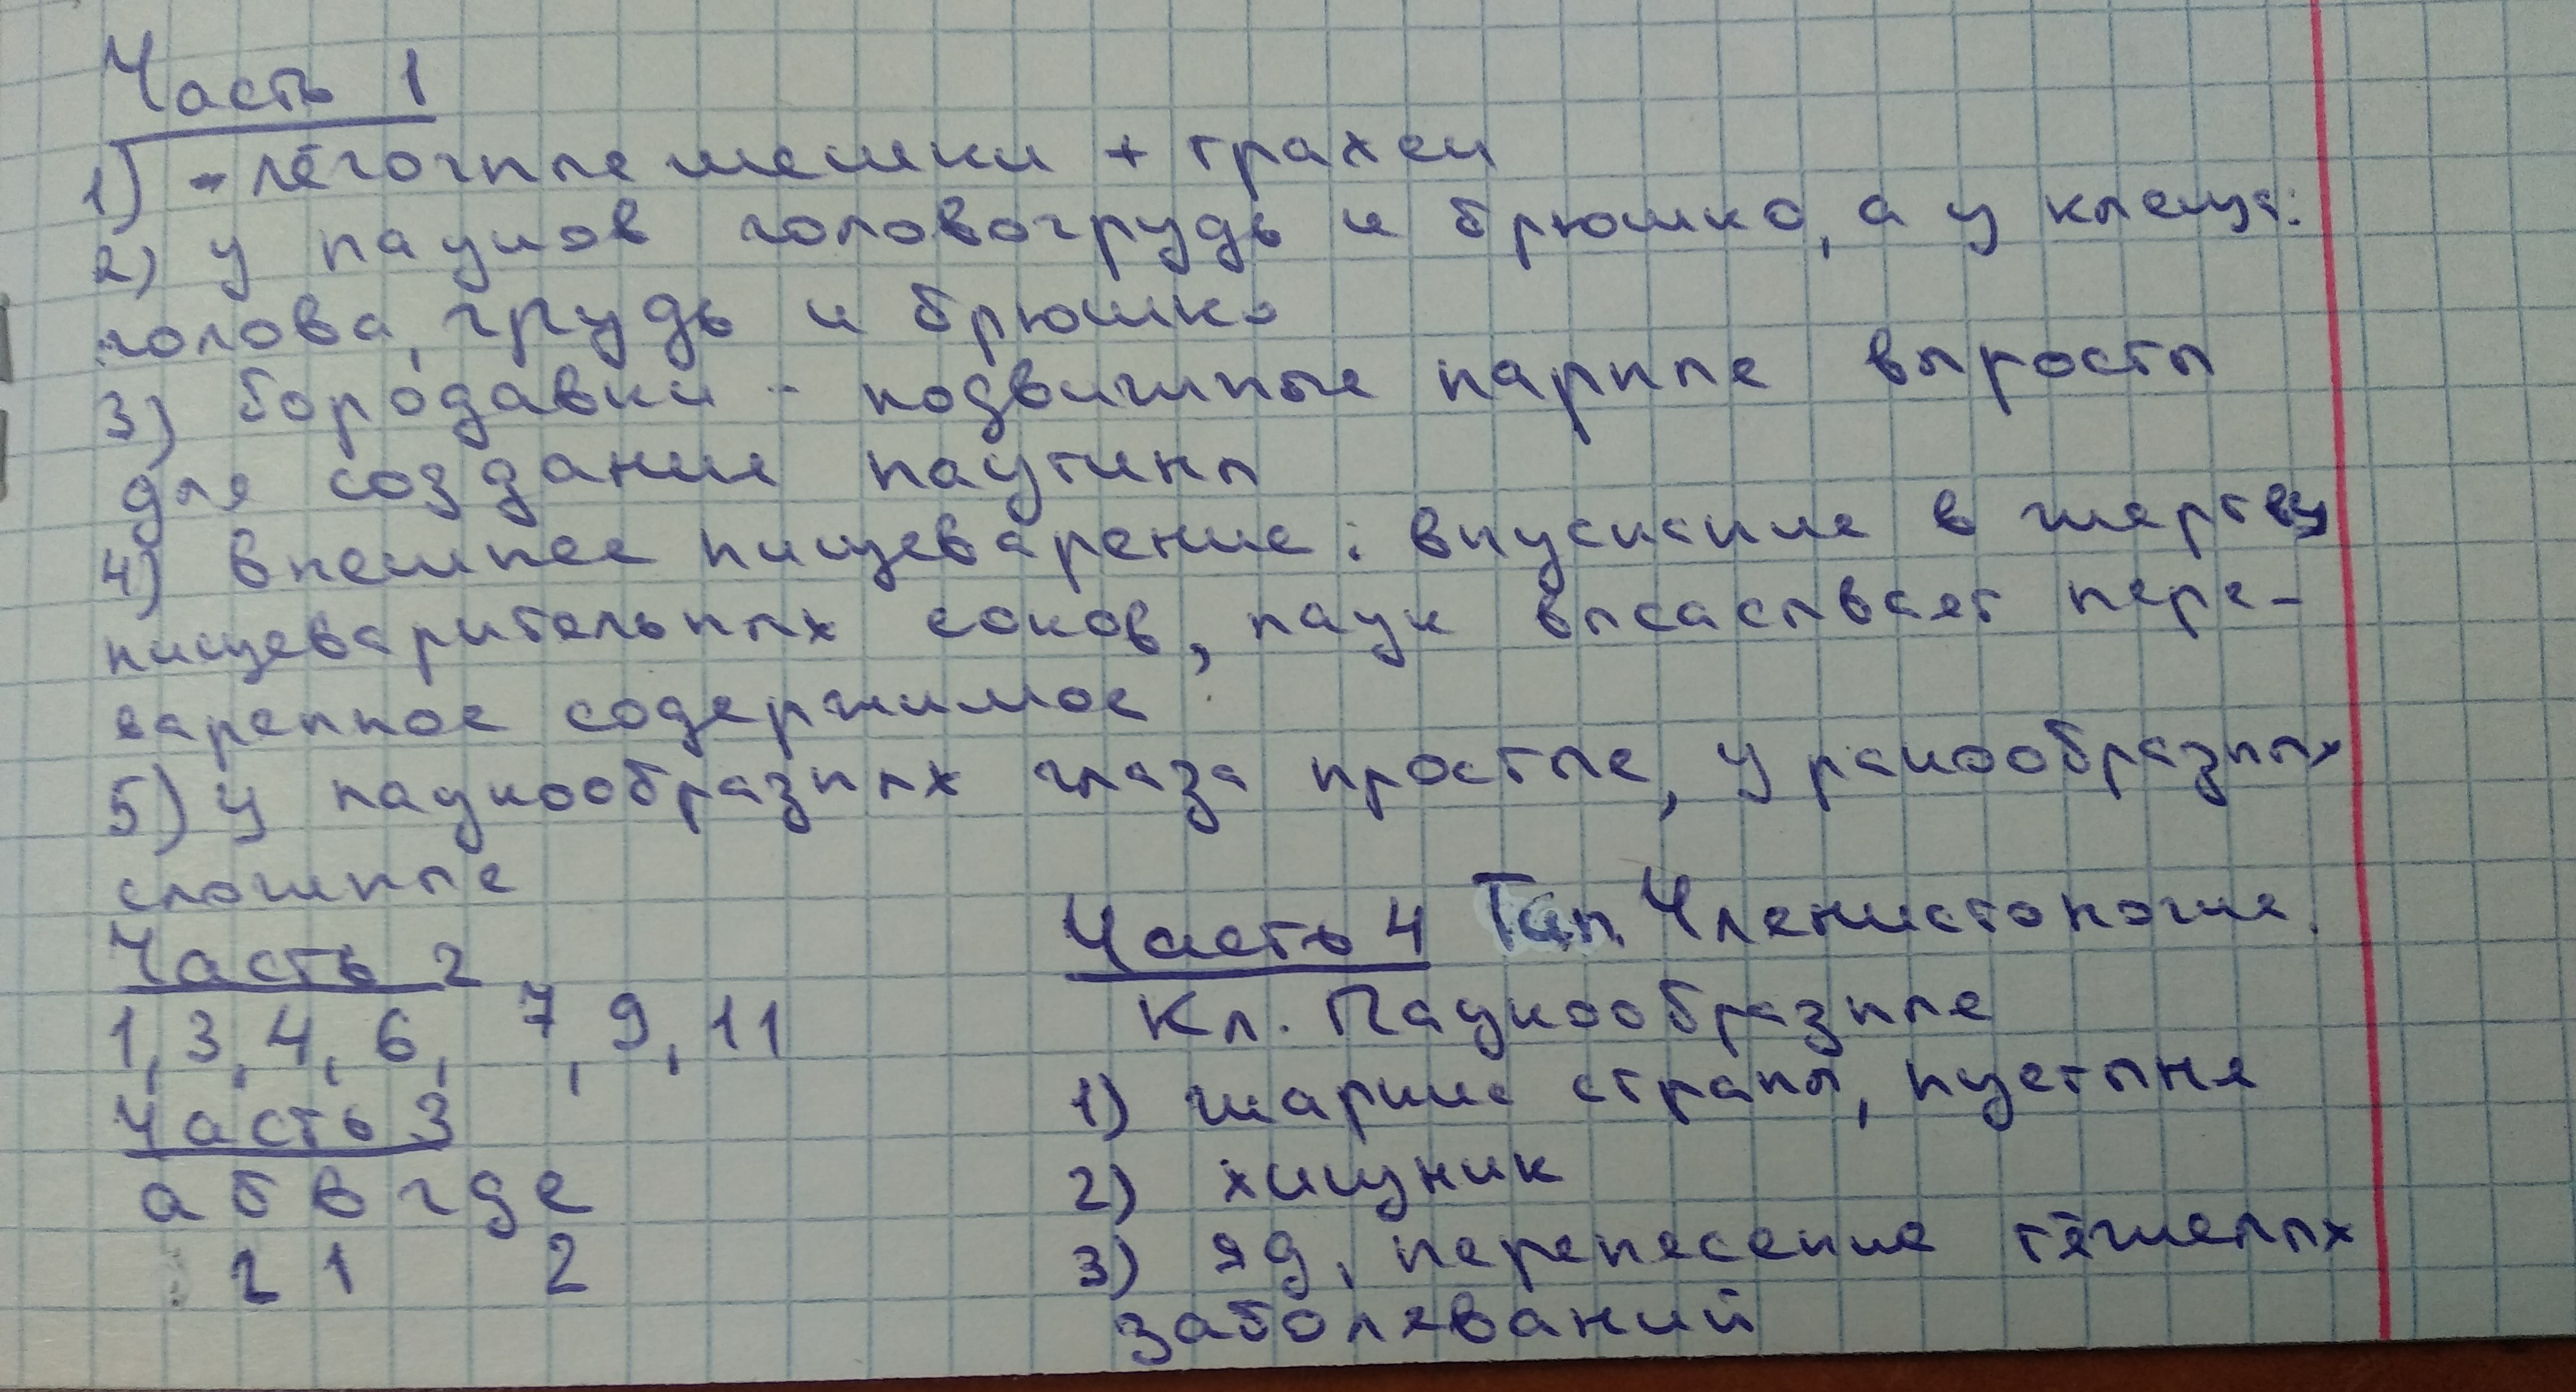 Часть 1
1) - лёгочные мешки + трахеи
2) у пауков головогрудь и брюшко, а у клеща:
голова, грудь и брюшко
3) бородавки - подвижные парные выросты
для создания паутины
4) внешнее пищеварение: впускание в жертву
пищеварительных соков, паук высасывает пере-
варенное содержимое
5) у паукообразных глаза простые, у ракообразных
сложные
Часть 2
1, 3, 4, 6, 7, 9, 11
Часть 3
а б в г д е
2 1 2
Часть 4 Тип Членистоногие.
Кл. Паукообразные
1) жаркие страны, пустыня
2) хищник
3) яд, перенесение тяжелых
заболеваний